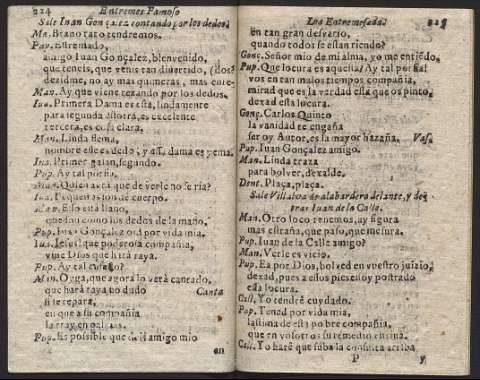 224 Entremes Famoso
Sale Iuan Gonçalez contando por los dedos.
Ma. Brauo rato tendremos.
Pap. Estremado,
amigo Iuan Gonçalez, bienvenido,
que teneis, que venis tan diuertido, (dos?
dezidme, no ay mas quimeras, mas ente-
Man. Ay que viene rezando por los dedos.
Iua. Primera Dama es esta, lindamente
para segunda estotra, es excelente
tercera, es cosa clara.
Man. Linda flema,
nombre este es dedo, y a la dama es yema.
Iua. Primer galan, segundo.
Pap. Ay tal porfia
Man. Quien aurà que de verle no se ria?
Iua. Pequeña son de cuerpo.
Man. Esso està llano,
que son como los dedos de la mano.
Pap. Iuan Gonçalez oid por vida mia.
Iua. Iesus! que poderosa compañia,
viue Dios que harà raya.
Pap. Ay tal
Man. Oyga, que agora lo verà cantado,
que harà raya no dudo Canta
si se repara,
en que a su compañia
la raya en
Pap. Es possible que assi amigo mio
en
Los Entremesada. 225
en tan gran desvario,
quando todos se estan riendo?
Gonç. Señor mio de mi alma, yo me entiẽdo.
Pap. Que locura es aquesta? Ay tal porfia!
vos en tan malos tiempos compañia,
mirad que es la verdad esta que os pinto,
dexad esta locura.
Gonç. Carlos Quinto
la vanidad se engaña
ser oy Autor, es la mayor hazaña. Vase
Pap. Iuan Gonçalez amigo.
Man. Linda traza
para bolver, dexalde.
Dent. Plaça, plaça.
Sale Villalva de alabardero delante, y de-
tras Iuan de la Calle.
Man. Otro loco tenemos, ay figura
mas estraña, que passo, que mesura.
Pap. Iuan de la Calle amigo?
Man. Verle es vicio.
Pap. Ea por Dios, bolved en vuestro juizio,
dexad, pues a essos pies estoy postrado
essa locura.
Call. Yo tendrè cuydado.
Pap. Tened por vida mia,
lastima de essa pobre compañia,
que en vosotros su remedio estriua.
Call. Yo harè que suba la consulta arriba
P y